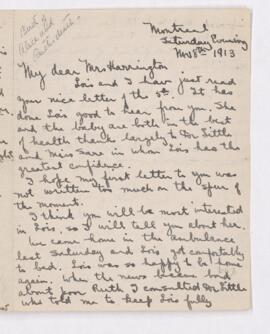 Montreal
Saturday Evening
Nov 8th 1913
My dear Mrs Harrington
Lois and I have just read
you nice letter of the 5th. It has
done Lois good to hear from you. She
and the baby are both in the best
of health thanks largely to Dr. Little
and Miss Sara in whom Lois has the
greatest confidence.
I hope my first letter to you was
not written too much on the spur of
the moment.
I think you will be most interested
in Lois, so I will tell you about her.
We came home in the ambulance
last Saturday and Lois got comfortably
to bed. Lois was so happy to be home
again. When the news became bad
about poor Ruth I consulted Dr. Little
who told me to keep Lois fully